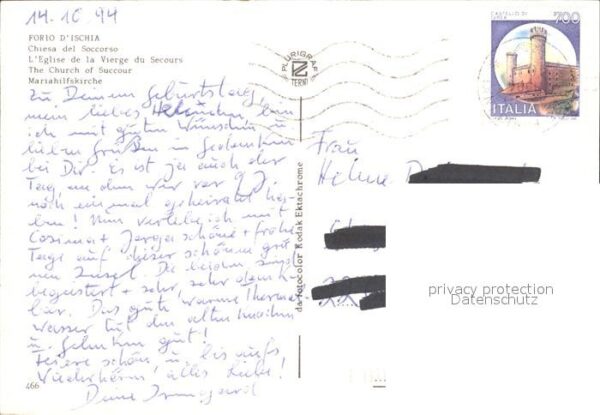 14.10.94
FORIO D'ISCHIA
Chiesa del Soccorso
L'Eglise de la Vierge du Secours
The Church of Succour
Mariahilfskirche
Zu Deinem Geburtstag,
mein liebes Helmchen bin
ich mit guten Wünschen u.
lieben Grüßen in Gedanken
bei Dir. Es ist ja auch der
Tag, an dem wir vor 9 J.
noch einmal geheiratet ha-
ben! Nun verlebe ich mit
Cosima + Jerga schöne + frohe
Tage auf dieser schönen grü-
nen Insel. Die beiden sind
begeistert + sehr, sehr dank-
bar. Das gute, warme Thermal-
wasser tut den alten Knochen
u. Gelenken gut!
Feiere schön u. bis aufs
Wiederhören! alles Liebe!
Deine Irmgard
466
PLURIGRAF
TERNI
da fotocolor Kodak Ektachrome
CASTELLO DI
IVREA
700
ITALIA
Frau
Helme
privacy protection
Datenschutz